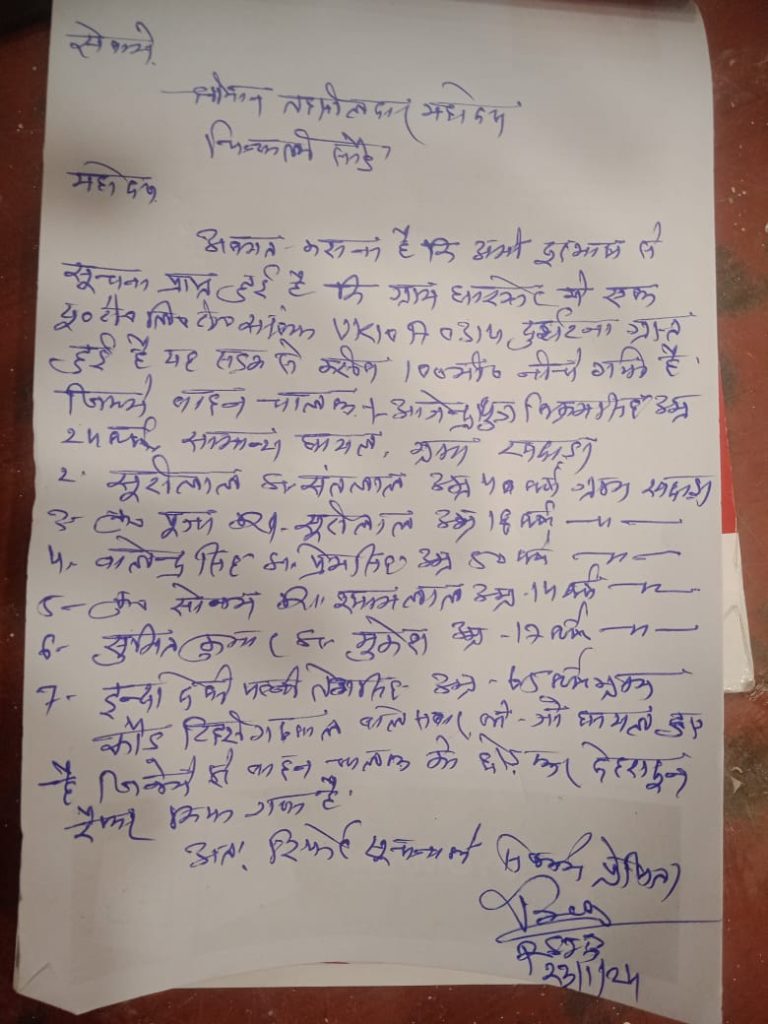 सेवा मे,
श्रीमान तहसीलदार महोदय
चिन्यालीसौड़
महोदय,
अवगत कराना है कि अभी दूरभाष से
सूचना प्राप्त हुई है कि ग्राम में एक
यू० टी० नि० टी० UK10 A 0314 दुर्घटना ग्रस्त
हुई है यह सड़क से करीब 100 मी० नीचे गयी है
जिसमे वाहन चालक 1- पुत्र विक्रम सिंह उम्र
24 वर्ष सामान्य घायल, ग्राम
2- सूरीलाल S/o संतलाल उम्र 40 वर्ष ग्राम
3- कु० पूजा D/o सूरीलाल उम्र 18 वर्ष —〃—
4- सिंह S/o प्रेम सिंह उम्र 50 वर्ष —〃—
5- कु० D/o श्यामलाल उम्र -14 वर्ष —〃—
6- सुमित कुमार S/o मुकेश उम्र -17 वर्ष —〃—
7- देवी पत्नी सिंह उम्र - 65 वर्ष ग्राम
टिहरी गढ़वाल वाले सवार थे - जो घायल हुए
है जिनमें से वाहन चालक को छोड़ कर देहरादून
रैफर किया गया है।
अतः रिपोर्ट सूचनार्थ प्रेषित।
23/1/24